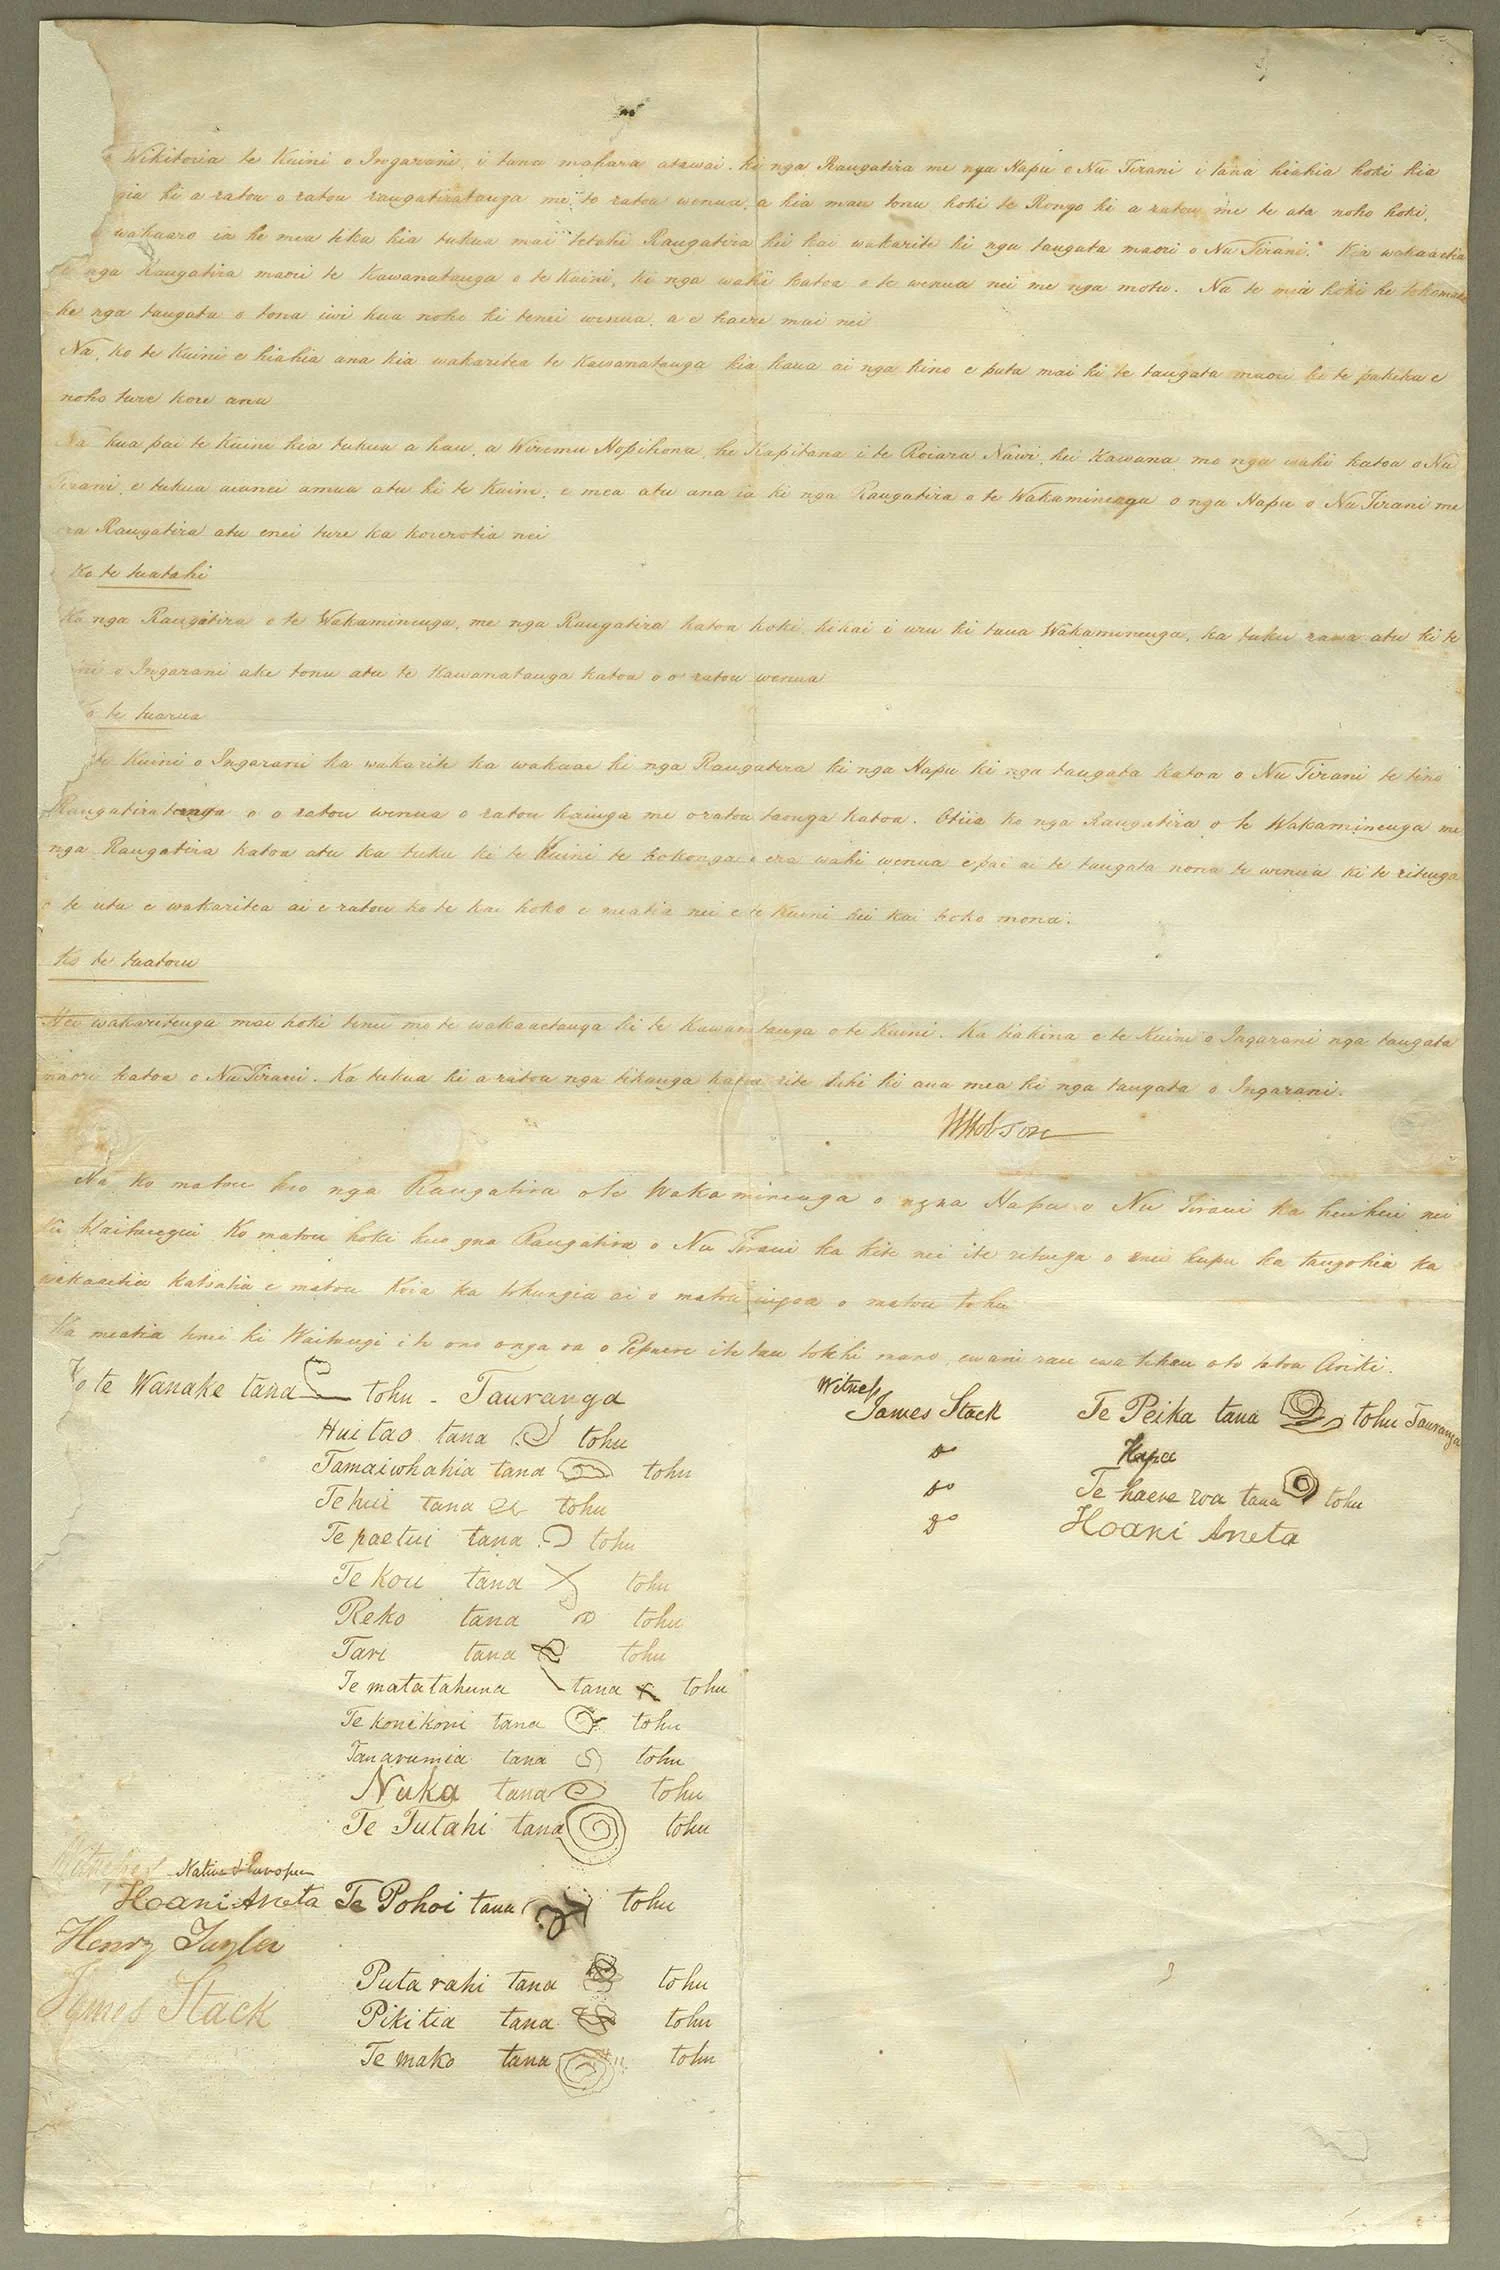 Wikitoria te Kuini o Ingarani, i tana mahara atawai ki nga Raugatira me nga Hapu o Nu Tirani i tana hiahia hoki kia
ki a ratou o ratou raugatiratauga me to ratou wenua, a kia mau tonu hoki te Rongo ki a ratou me te ata noho hoki,
wakaaro ia he mea tika kia tukua mai tetahi Raugatira hei kai wakarite ki nga taugata maori o Nu Tirani. Kia wakaaetia
nga Raugatira maori te Kawanatauga o te Kuini, ki nga wahi katoa o te wenua nei me nga motu. Na te mea hoki he tokomaha
ke nga taugata o tona iwi kua noho ki tenei wenua, a e haere mai nei
Na, ko te Kuini e hiahia ana kia wakaritea te Kawanatauga kia kaua ai nga kino e puta mai ki te taugata maori ki te pakeha e
noho ture kore ana
Na kua pai te Kuini kia tukua a hau, a Wiremu Hopihona, he Kapitana i te Roiara Nawi, hei Kawana mo nga wahi katoa o Nu
Tirani, e tukua aianei amua atu ki te Kuini, e mea atu ana ia ki nga Raugatira o te Wakaminenga o nga Hapu o Nu Tirani me
era Raugatira atu enei ture ka korerotia nei
Ko te tuatahi
Ko nga Raugatira o te Wakamineuga, me nga Raugatira katoa hoki, kihai i uru ki taua Wakamineuga, ka tuku rawa atu ki te
o Ingarani ake tonu atu te Kawanatauga katoa o o ratou wenua
te tuarua
te Kuini o Ingarani ka wakarite ka wakaae ki nga Raugatira ki nga Hapu ki nga taugata katoa o Nu Tirani te tino
Raugatiratanga o o ratou wenua o ratou kaiuga me o ratou taonga katoa. Otiia ko nga Raugatira o te Wakamineuga me
nga Raugatira katoa atu ka tuku ki te Kuini te hokonga o era wahi wenua e pai ai te taugata nona te wenua ki te rituga
o te utu e wakaritea ai e ratou ko te kai hoko e meatia nei e te Kuini hei kai hoko mona.
Ko te tuatoru
Hei wakarituga mai hoki tenei mo te wakaaetauga ki te Kawanatauga o te Kuini. Ka tiakina e te Kuini o Ingarani nga taugata
maori katoa o Nu Tirani. Ka tukua ki a ratou nga tikauga katoa rite tahi ki ana mea ki nga taugata o Ingarani.
WHobson
Na ko matou ko nga Raugatira o te Wakamineuga o nga Hapu o Nu Tirani ka huihui nei
ki Waitangi Ko matou hoki ko gna Raugatira o Nu Tirani ka kite nei i te rituga o enei kupu ka taugohia ka
wakaaetia katoatia e matou Koia ka tohungia ai o matou ingoa o matou tohu
Ka meatia tenei ki Waitangi i te ono o nga ra o Pepuere i te tau kotahi mano, e wa rau e wa tekau o to tatou Ariki.
Ko te Wanake tana tohu - Tauranga
Huitao tana tohu
Tamaiwhahia tana tohu
Te hui tana tohu
Te paetui tana tohu
Te kou tana tohu
Reko tana tohu
Tari tana tohu
Te matatahuna tana tohu
Te konikoni tana tohu
Tanarumia tana tohu
Nuka tana tohu
Te Tutahi tana tohu
Witnesses Native & European
Hoani Aneta Te Pohoi tana tohu
Henry Tayler
James Stack
Putarahi tana tohu
Pikitia tana tohu
Te mako tana tohu
Witness
James Stack Te Peika tana tohu Tauranga
Do Hapa
Do Te haere roa tana tohu
Do Hoani Aneta